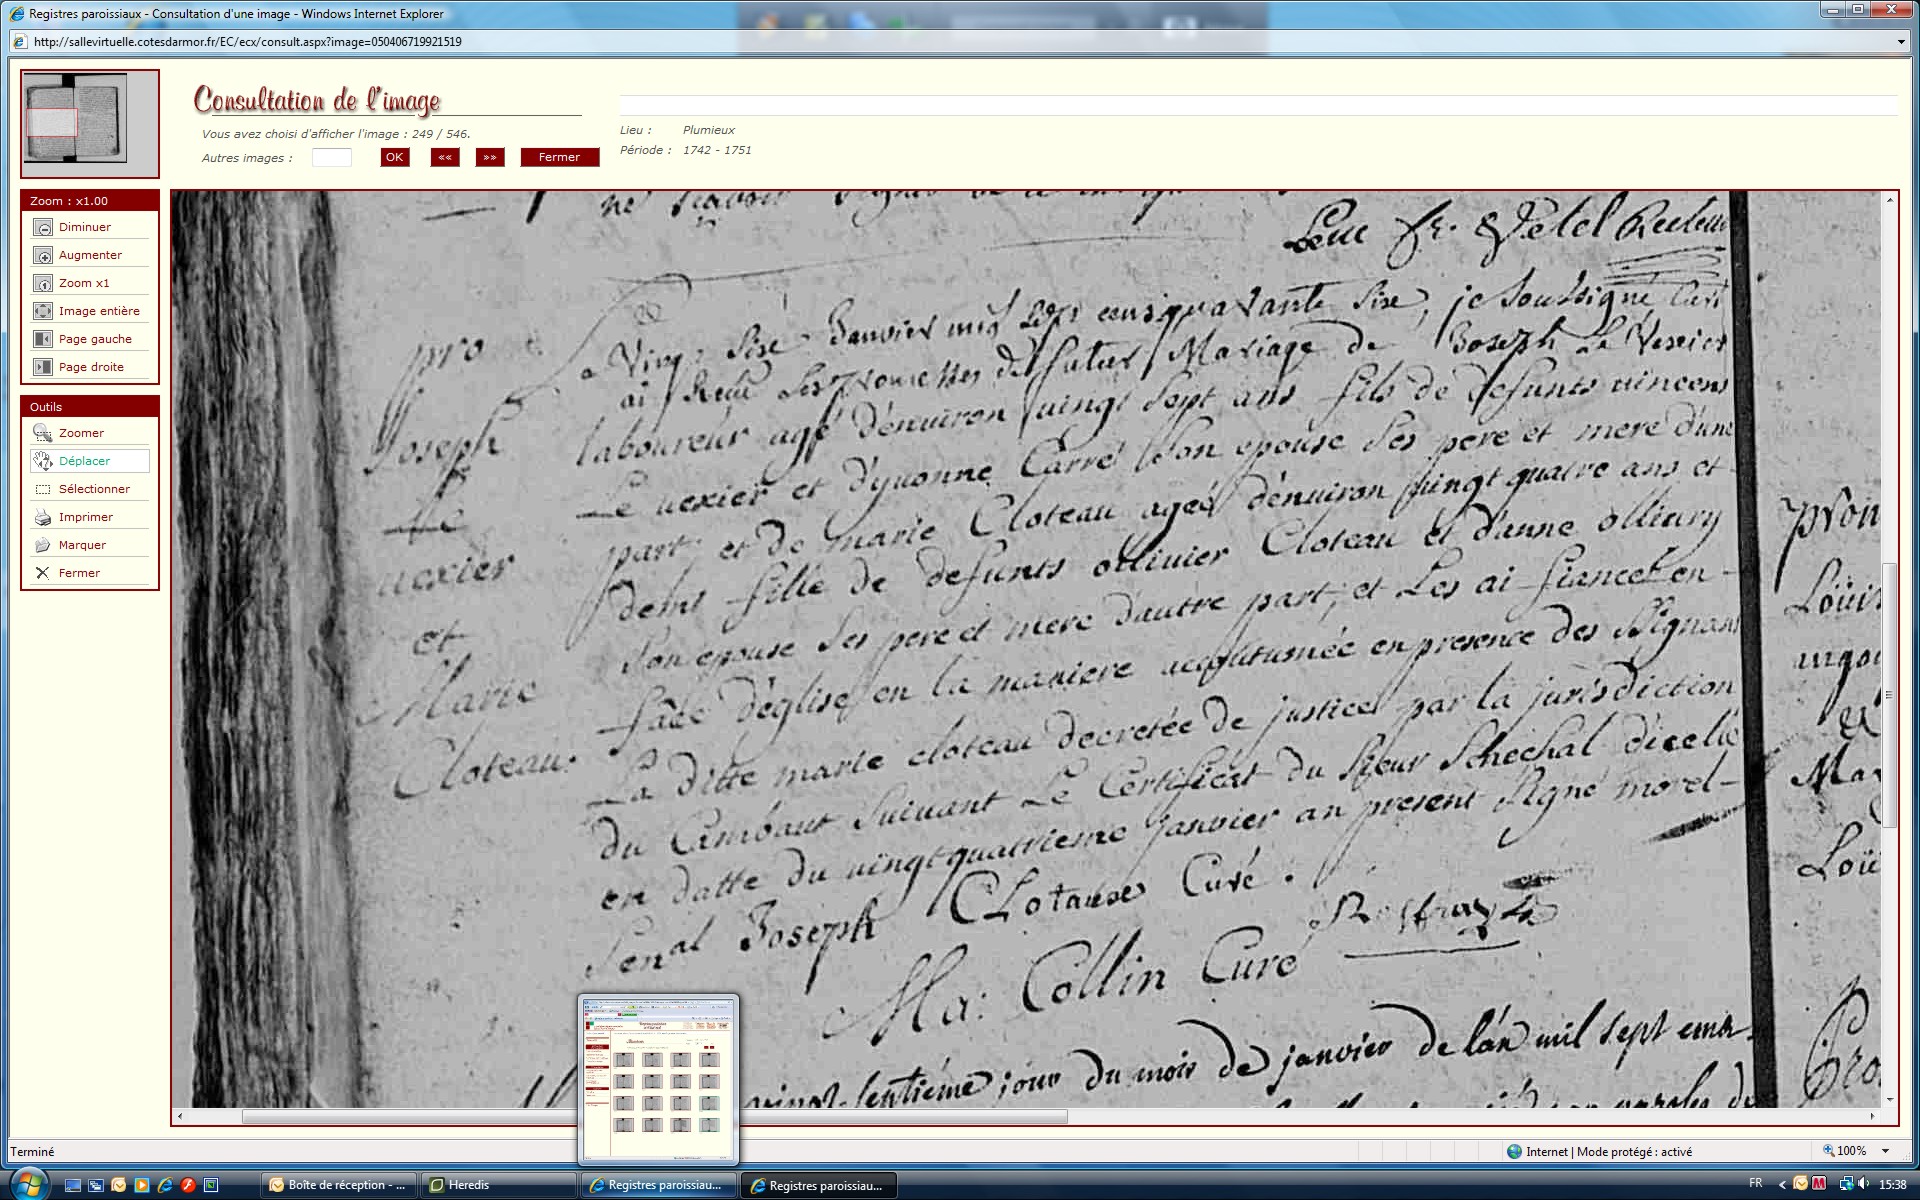 Registres paroissiaux - Consultation d'une image - Windows Internet Explorer
http://sallevirtuelle.cotesdarmor.fr/EC/ecx/consult.aspx?image=050406719921519
Consultation de l'image
Vous avez choisi d'afficher l'image : 249 / 546.
Autres images :
OK
««
»»
Fermer
Lieu : Plumieux
Période : 1742 - 1751
Zoom : x1.00
Diminuer
Augmenter
Zoom x1
Image entière
Page gauche
Page droite
Outils
Zoomer
Déplacer
Sélectionner
Imprimer
Marquer
Fermer
pro
Joseph
Le
uexier
et
Marie
Cloteau.
Vingt Sixe Janvier mil cens quarante Sixe, je Soussigné Curé
ai Recu Les promesses de futur Mariage de Joseph Le Vexier
laboureur agé d'enuiron uingt Sept ans fils de defunts uincent
Le uexier et d'yuonne Carré Son epouse Ses pere et mere d'une
part, et de marie Cloteau ageé d'enuiron uingt quatre ans et
demi fille de defunts ollinier Cloteau et d'anne olliury
Son epouse Ses pere et mere d'autre part, et Les ai fiancé en
face d'eglise en la maniere accoutumée en presence des Signans
La ditte marie cloteau decretée de justice par la jurisdiction
du Cambout Suiuant Le Certificat du Sieur Senechal d'icelle
en datte du uingt quatrieme janvier an present Signé morel
Senal Joseph Clotause Curé.
Ma: Collin Curé
uingt Septiéme jour du mois de janvier de l'an mil sept
Louis
Ma
Terminé
Internet | Mode protégé : activé
100%
Boîte de réception - ...
Heredis
Registres paroissiau...
Registres paroissiau...
FR
15:38